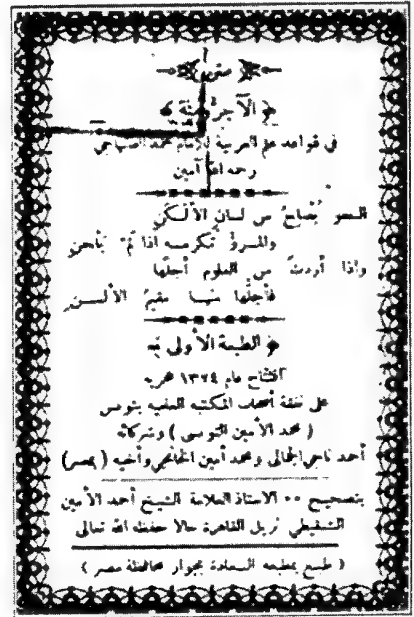 متن
﴿ الآجرومية ﴾
في قواعد علم العربية للامام محمد الصنهاجي
رحمه الله آمين
النحو يُصلح من لسان الألكن
والمرؤ تكرمه اذا لم يلحن
واذا أردت من العلوم أجلّها
فأجلّها منها مقيم الألسن
﴿ الطبعة الأولى ﴾
افتتاح عام ١٣٢٤ هجريه
على نفقة أصحاب المكتبه العلميه بتونس
( محمد الأمين التونسي ) وشركائه
أحمد ناجي الجمالي ومحمد أمين الخانجي وأخيه ( بمصر )
بتصحيح ٠٠ الاستاذ العلامة الشيخ أحمد الأمين
الشنقيطي نزيل القاهرة حالا حفظه الله تعالى
( طبع بمطبعه السعادة بجوار محافظة مصر )